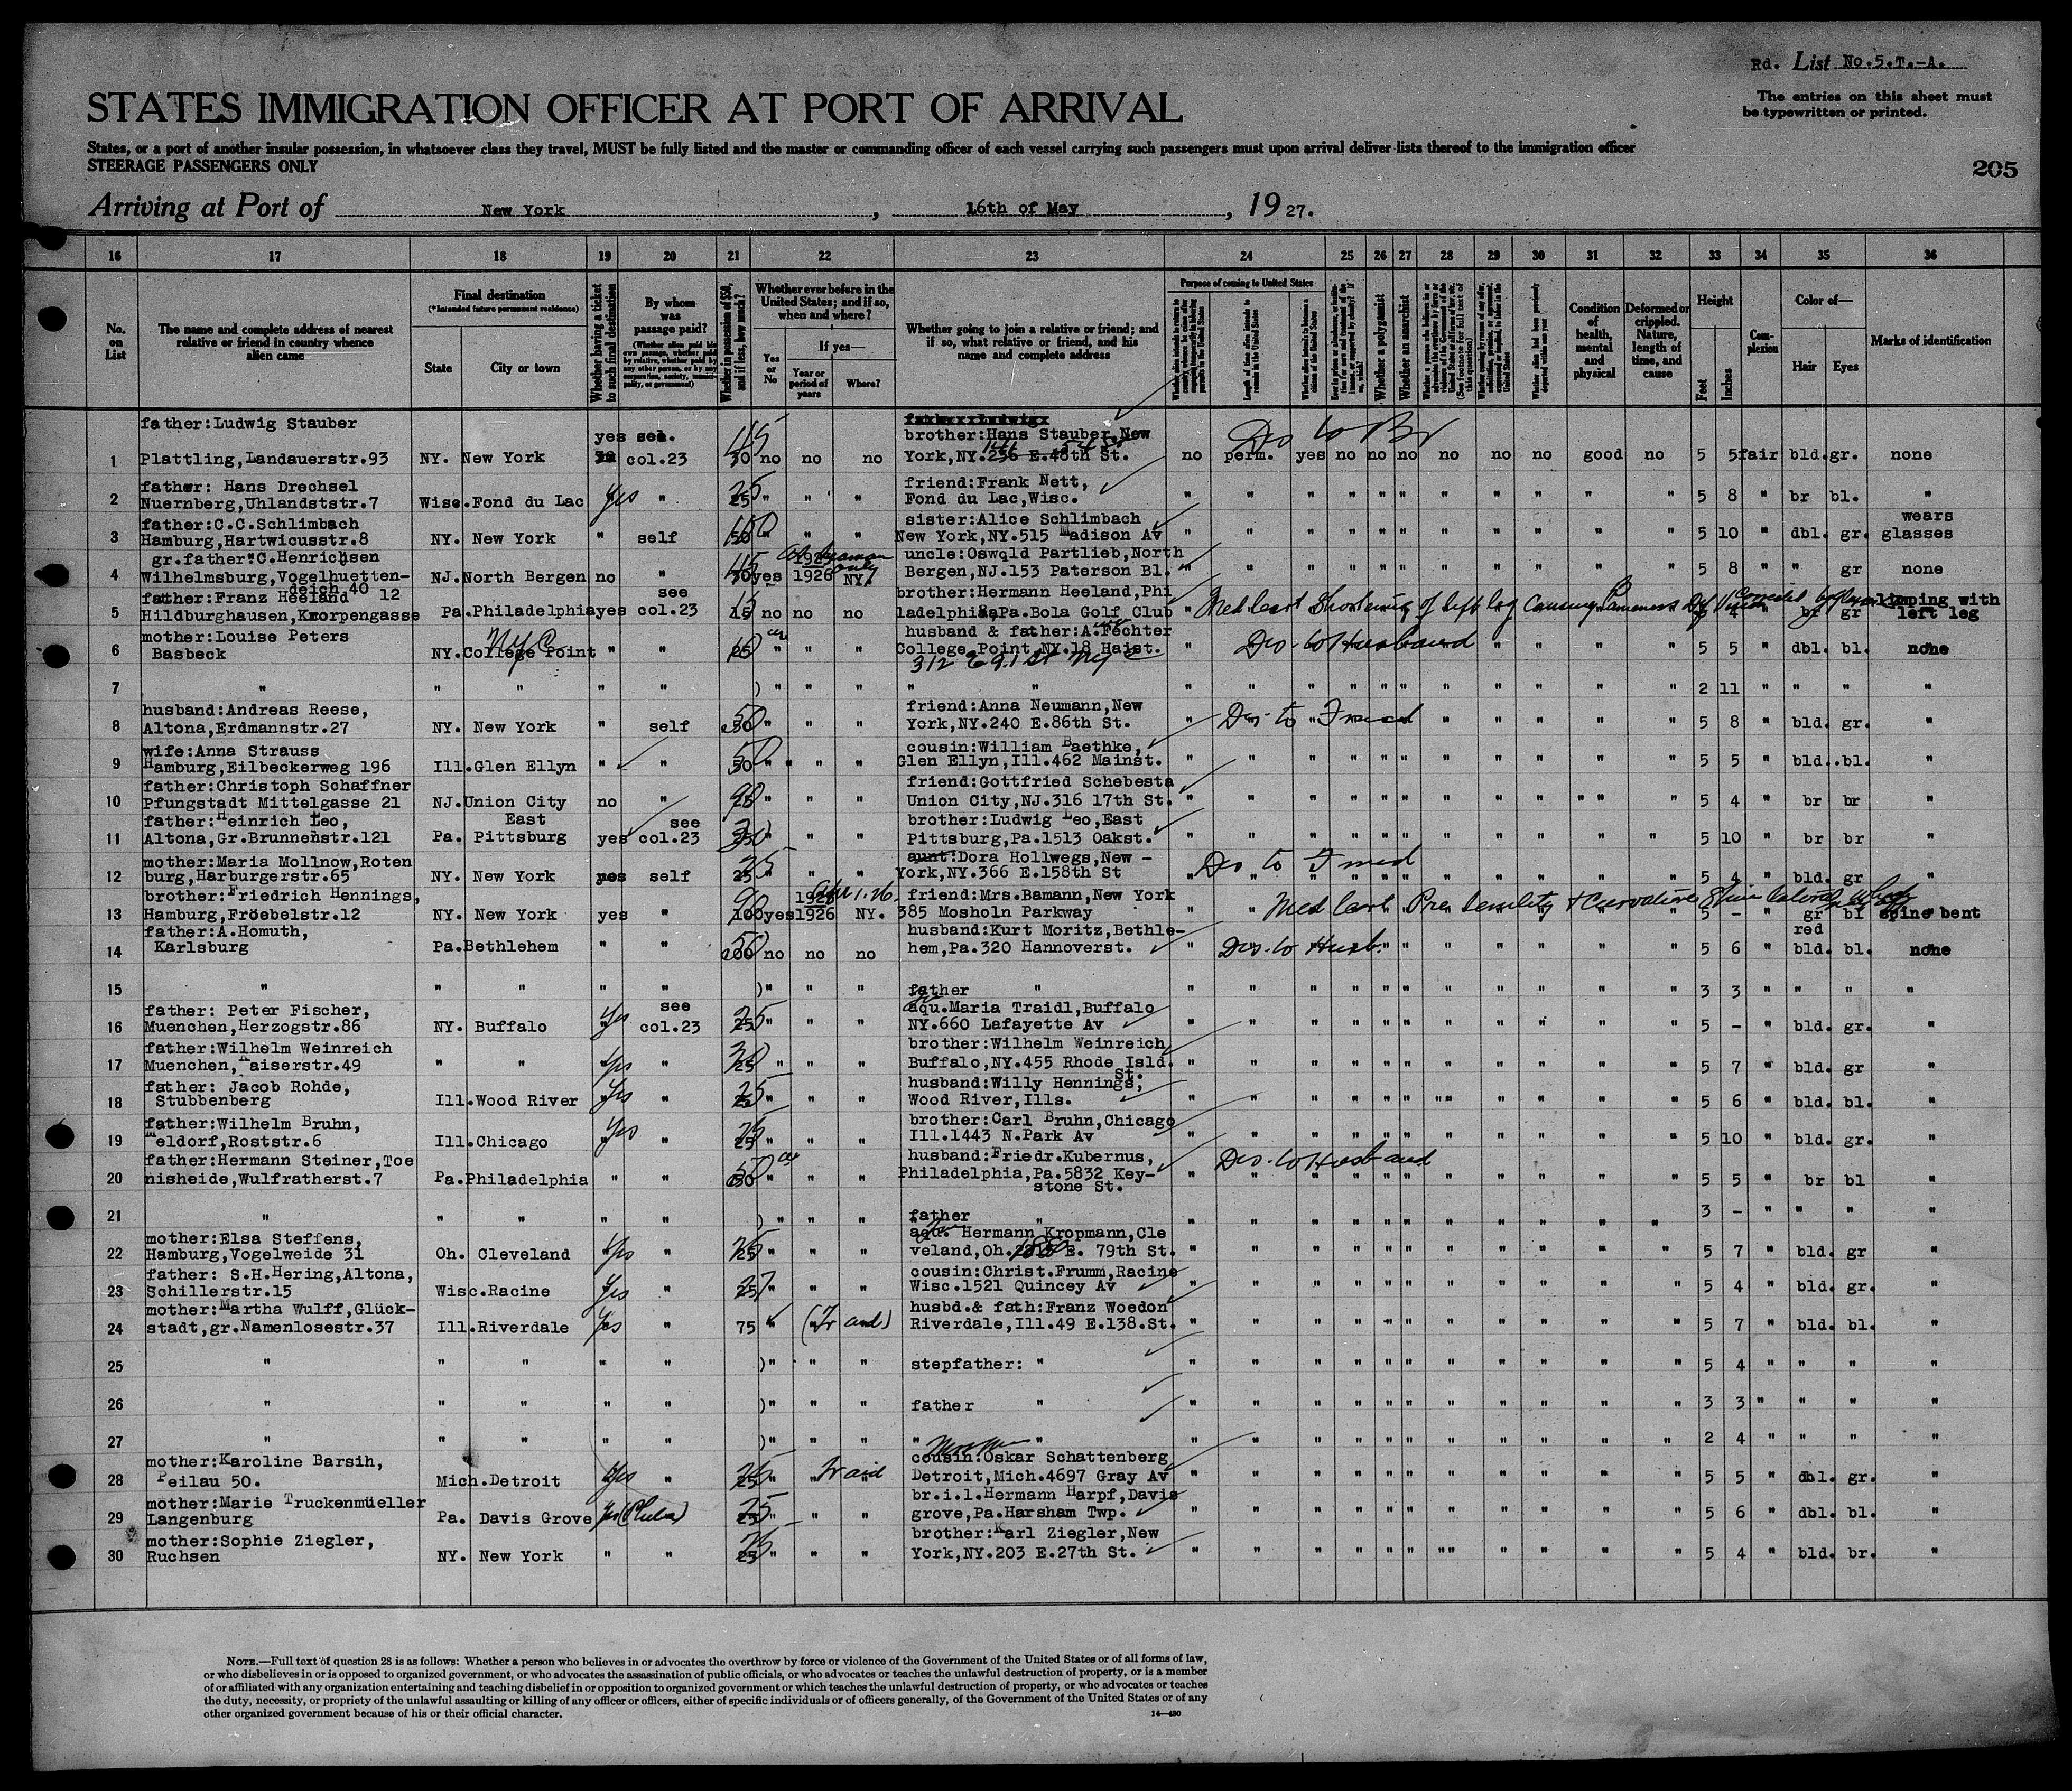 Rd. List No.5.T.-A.
STATES IMMIGRATION OFFICER AT PORT OF ARRIVAL
The entries on this sheet must
be typewritten or printed.
States, or a port of another insular possession, in whatsoever class they travel, MUST be fully listed and the master or commanding officer of each vessel carrying such passengers must upon arrival deliver lists thereof to the immigration officer
STEERAGE PASSENGERS ONLY
205
Arriving at Port of New York, 16th of May, 1927.
16 17 18 19 20 21 22 23 24 25 26 27 28 29 30 31 32 33 34 35 36
No. on List
The name and complete address of nearest relative or friend in country whence alien came
Final destination
(*Intended future permanent residence)
State
City or town
Whether having a ticket to such final destination
By whom was passage paid?
(Whether alien paid his own passage, whether paid by relative, whether paid by any other person, or by any corporation, society, municipality, or government)
Whether in possession of $50, and if less, how much?
Whether ever before in the United States; and if so, when and where?
Yes or No
If yes—
Year or period of years
Where?
Whether going to join a relative or friend; and if so, what relative or friend, and his name and complete address
Purpose of coming to United States
Whether a polygamist
Whether an anarchist
Condition of health, mental and physical
Deformed or crippled. Nature, length of time, and cause
Height
Feet
Inches
Complexion
Color of—
Hair
Eyes
Marks of identification
father:Ludwig Stauber
brother:Hans Stauber,New
yes see.
45
Des to Br
1 Plattling,Landauerstr.93 NY. New York col.23 30 no no no York,NY. E.48th St. no perm. yes no no no no no no good no 5 5 fair bld. gr. none
father: Hans Drechsel
friend:Frank Nett,
2 Nuernberg,Uhlandstr.7 Wisc.Fond du Lac Yes " 25 " " " Fond du Lac,Wisc. " " " " " " " " " " " 5 8 " br bl. "
father:C.C.Schlimbach
sister:Alice Schlimbach
wears
3 Hamburg,Hartwicusstr.8 NY. New York " self 50 " " " New York,NY.515 Madison Av " " " " " " " " " " " 5 10 " dbl. gr. glasses
gr.father:C.Henrichsen
1925
uncle:Oswqld Partlieb,North
4 Wilhelmsburg,Vogelhuetten- NJ.North Bergen no " yes 1926 NY. Bergen,NJ.153 Paterson Bl. " " " " " " " " " " " 5 8 " " gr none
deich 40 12
father:Franz Heeland
see
brother:Hermann Heeland,Phi
Med cert shortening of left leg causing lameness
limping with
5 Hildburghausen,Knorpengasse Pa.Philadelphia yes col.23 15 no no no ladelphia,Pa.Bola Golf Club " 4 gr left leg
mother:Louise Peters
NYC
husband & father:A.Fechter
Des. to Husband
6 Basbeck NY.College Point " " 25 " " " College Point,NY.18 Haist. " 5 5 " dbl. bl. none
312 E 91 St NYC
7 " " " " " ) " " " " " " " " " " " " " " " " " 2 11 " " " "
husband:Andreas Reese,
friend:Anna Neumann,New
Des. to Friend
8 Altona,Erdmannstr.27 NY. New York " self 50 " " " York,NY.240 E.86th St. " 5 8 " bld. gr. "
wife:Anna Strauss
cousin:William Baethke,
9 Hamburg,Eilbeckerweg 196 Ill.Glen Ellyn " " 50 " " " Glen Ellyn,Ill.462 Mainst. " " " " " " " " " " " 5 5 " bld. bl. "
father:Christoph Schaffner
friend:Gottfried Schebesta
10 Pfungstadt Mittelgasse 21 NJ.Union City no " 25 " " " Union City,NJ.316 17th St. " " " " " " " " " " " 5 4 " br br "
father:Heinrich Leo,
East
see
brother:Ludwig Leo,East
11 Altona,Gr.Brunnenstr.121 Pa. Pittsburg yes col.23 " " " Pittsburg,Pa.1513 Oakst. " " " " " " " " " " " 5 10 " br br "
mother:Maria Mollnow,Roten
aunt:Dora Hollwegs,New -
Des to Friend
12 burg,Harburgerstr.65 NY. New York yes self 25 " " " York,NY.366 E.158th St " 5 4 " bld. gr "
brother:Friedrich Hennings,
friend:Mrs.Bamann,New York
Med cert
13 Hamburg,Fröebelstr.12 NY. New York yes " 100 yes 1926 NY. 385 Mosholn Parkway 5 - gr bl spine bent
father:A.Homuth,
husband:Kurt Moritz,Bethle-
red
Des. to Husb.
14 Karlsburg Pa.Bethlehem " " 200 no no no hem,Pa.320 Hannoverst. " 5 6 " bld. bl. none
15 " " " " " ) " " " father " " " " " " " " " " " " 3 3 " " " "
father: Peter Fischer,
see
aqu.Maria Traidl,Buffalo
16 Muenchen,Herzogstr.86 NY. Buffalo Yes col.23 25 " " " NY.660 Lafayette Av " " " " " " " " " " " 5 - " bld. gr. "
father:Wilhelm Weinreich
brother:Wilhelm Weinreich
17 Muenchen,Kaiserstr.49 " " Yes " 25 " " " Buffalo,NY.455 Rhode Isld. " " " " " " " " " " " 5 7 " bld. gr "
St.
father: Jacob Rohde,
husband:Willy Hennings,
18 Stubbenberg Ill.Wood River Yes " 25 " " " Wood River,Ills. " " " " " " " " " " " 5 6 " bld. bl. "
father:Wilhelm Bruhn,
brother:Carl Bruhn,Chicago
19 Meldorf,Roststr.6 Ill.Chicago Yes " 25 " " " Ill.1443 N.Park Av " " " " " " " " " " " 5 10 " bld. gr. "
father:Hermann Steiner,Toe
husband:Friedr.Kubernus,
Des. to Husband
20 nisheide,Wulfratherst.7 Pa.Philadelphia " " 50 " " " Philadelphia,Pa.5832 Key- " " " " " " " " " " " 5 5 " br bl "
stone St.
21 " " " " " ) " " " father " " " " " " " " " " " " 3 - " " " "
mother:Elsa Steffens,
aqu. Hermann Kropmann,Cle
22 Hamburg,Vogelweide 31 Oh. Cleveland Yes " 25 " " " veland,Oh. E. 79th St. " " " " " " " " " " " 5 7 " bld. gr "
father: S.H.Hering,Altona,
cousin:Christ.Frumm,Racine
23 Schillerstr.15 Wisc.Racine Yes " 25 " " " Wisc.1521 Quincey Av " " " " " " " " " " " 5 4 " bld. gr. "
mother:Martha Wulff,Glück-
husbd.& fath:Franz Woedon
24 stadt,gr.Namenlosestr.37 Ill.Riverdale Yes " 75 " " " Riverdale,Ill.49 E.138.St. " " " " " " " " " " " 5 7 " bld. bl. "
25 " " " " " ) " " " stepfather: " " " " " " " " " " " " 5 4 " " " "
26 " " " " " ) " " " father " " " " " " " " " " " " 3 3 " " " "
27 " " " " " ) " " " " " " " " " " " " " " " " " 2 4 " " " "
mother:Karoline Barsih,
cousin:Oskar Schattenberg
28 Peilau 50. Mich.Detroit Yes " 25 " " " Detroit,Mich.4697 Gray Av " " " " " " " " " " " 5 5 " dbl. gr. "
mother:Marie Truckenmüeller
br.i.l.Hermann Harpf,Davis
29 Langenburg Pa. Davis Grove Yes (Phila) 25 " " " grove,Pa.Harsham Twp. " " " " " " " " " " " 5 6 " dbl. bl. "
mother:Sophie Ziegler,
brother:Karl Ziegler,New
30 Ruchsen NY. New York " " 25 " " " York,NY.203 E.27th St. " " " " " " " " " " " 5 4 " bld. br. "
NOTE.—Full text of question 28 is as follows: Whether a person who believes in or advocates the overthrow by force or violence of the Government of the United States or of all forms of law,
or who disbelieves in or is opposed to organized government, or who advocates the assassination of public officials, or who advocates or teaches the unlawful destruction of property, or is a member
of or affiliated with any organization entertaining and teaching disbelief in or opposition to organized government or which teaches the unlawful destruction of property, or who advocates or teaches
the duty, necessity, or propriety of the unlawful assaulting or killing of any officer or officers, either of specific individuals or of officers generally, of the Government of the United States or of any
other organized government because of his or their official character.
14—430